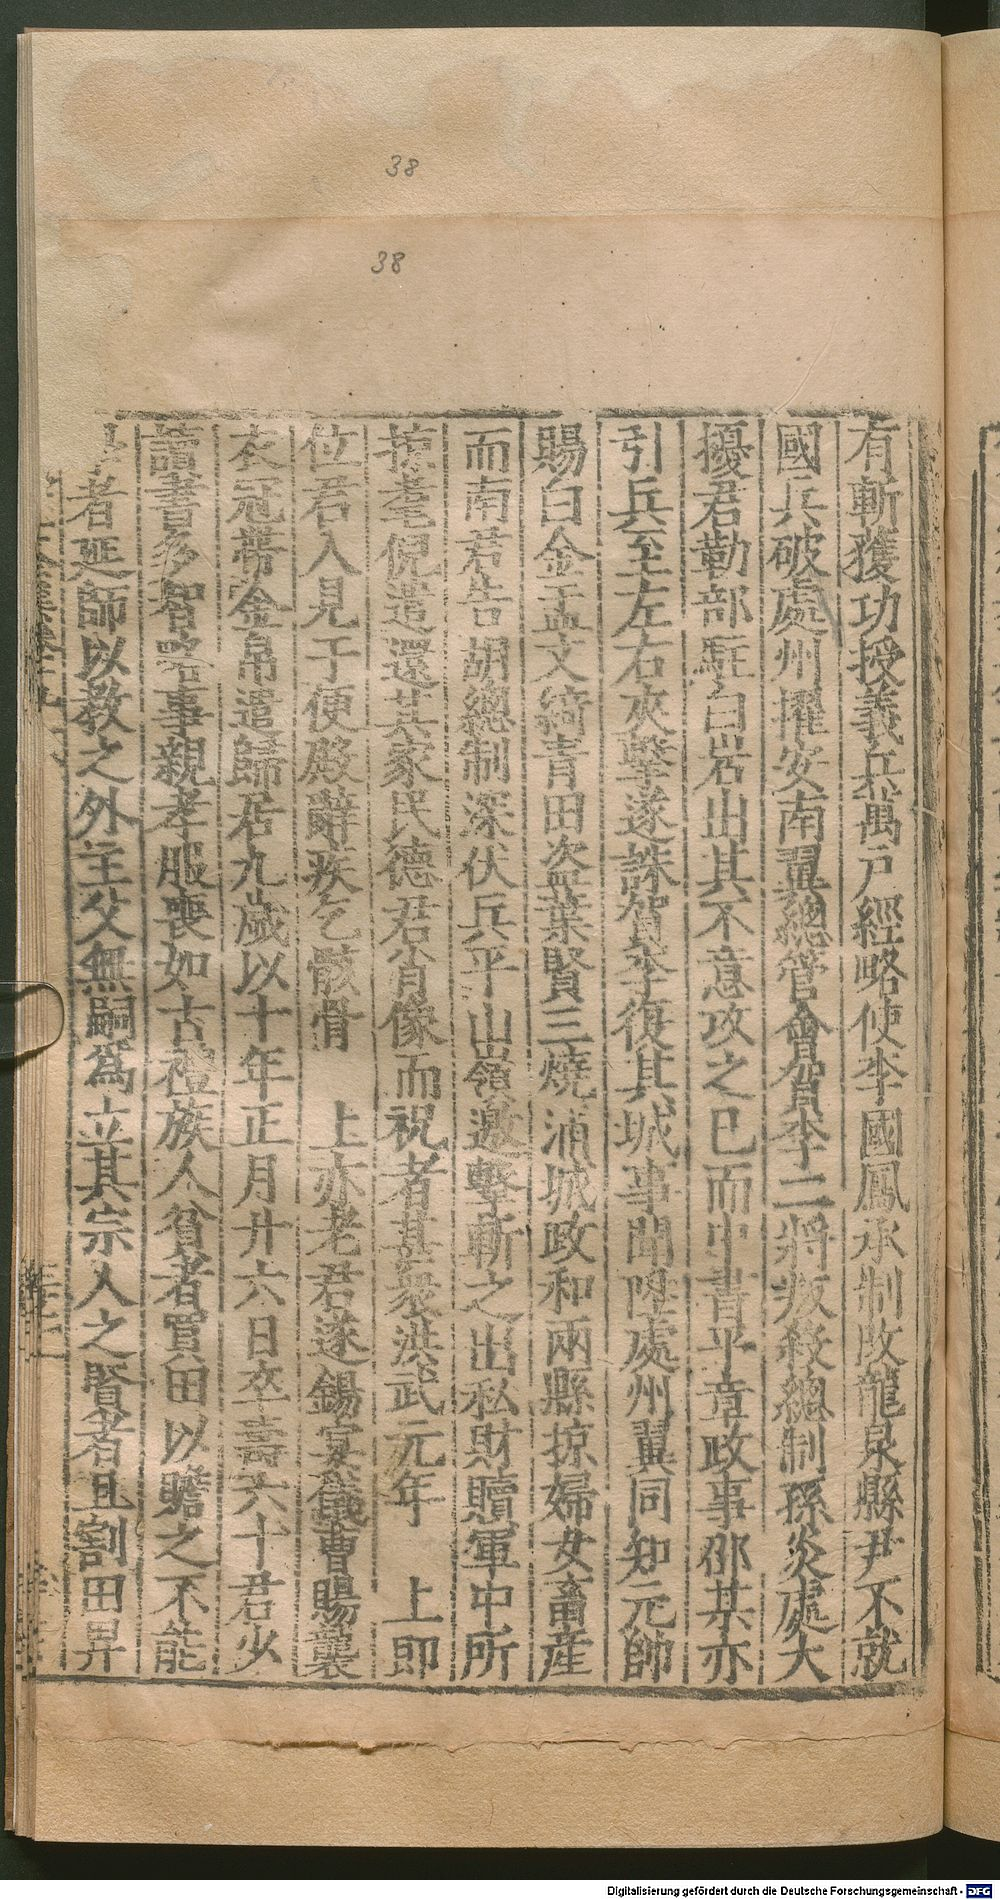 38
38
有斬獲功授義兵萬戶經略使李國鳳承制改龍泉縣尹不就
國兵破處州擢安南翼總管會賀李二將叛殺總制孫炎處大
擾君勒部駐白岩山其不意攻之巳而中書平章政事邵某亦
引兵至左右夾擊遂誅賀李復其城事聞陞處州翼同知元帥
賜白金盂文綺青田盜葉賢三燒浦城政和兩縣掠婦女畜産
而南君告胡總制深伏兵平山嶺邀擊斬之出私財贖軍中所
掠耄倪遣還其家民德君肖像而祝者甚衆洪武元年 上即
位君入見于便殿辭疾乞骸骨 上亦老君遂錫宴儀曹賜襲
衣冠帶金帛遣歸居九歲以十年正月廿六日卒壽六十君少
讀書多智略事親孝服喪如古禮族人貧者買田以贍之不能
學者延師以教之外主父無嗣爲立其宗人之賢者且割田畀
Digitalisierung gefördert durch die Deutsche Forschungsgemeinschaft - DFG